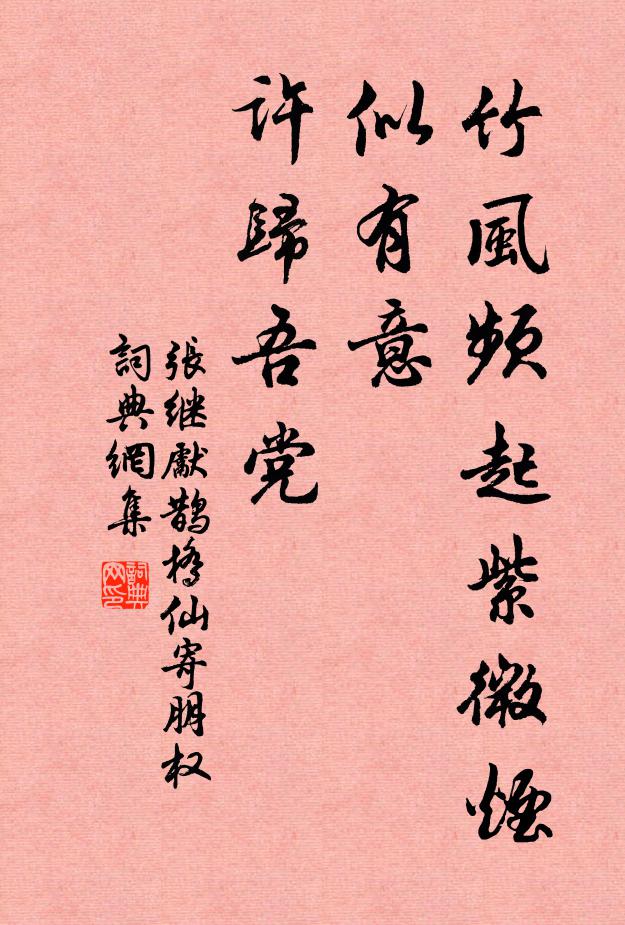 竹風頻起紫微煙
似有意
許歸吾党
張继獻鵲橋仙寄朋权
詞典網集
詞典网印